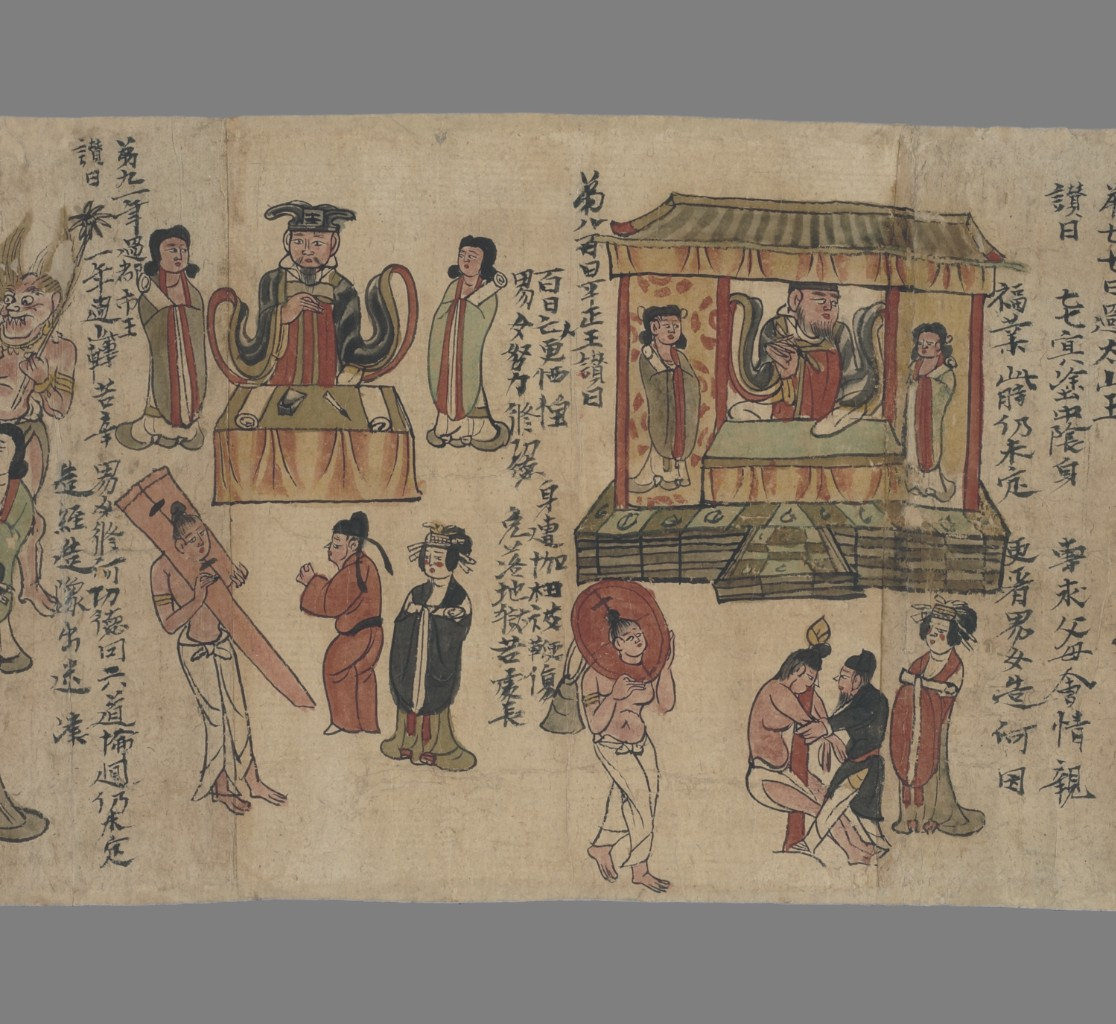 第七七日過太山王
讚曰 七七冥塗中陰身 專求父母會情親
福業此時仍未定 更看男女造何因
第八百日平正王讚曰
百日亡人更恓惶 身遭枷杻被鞭傷
男女努力修功德 免落地獄苦處長
第九一年過都市王
讚曰 一年過此轉苦辛 男女修何功德因 六道輪迴仍未定
造經造像出迷津